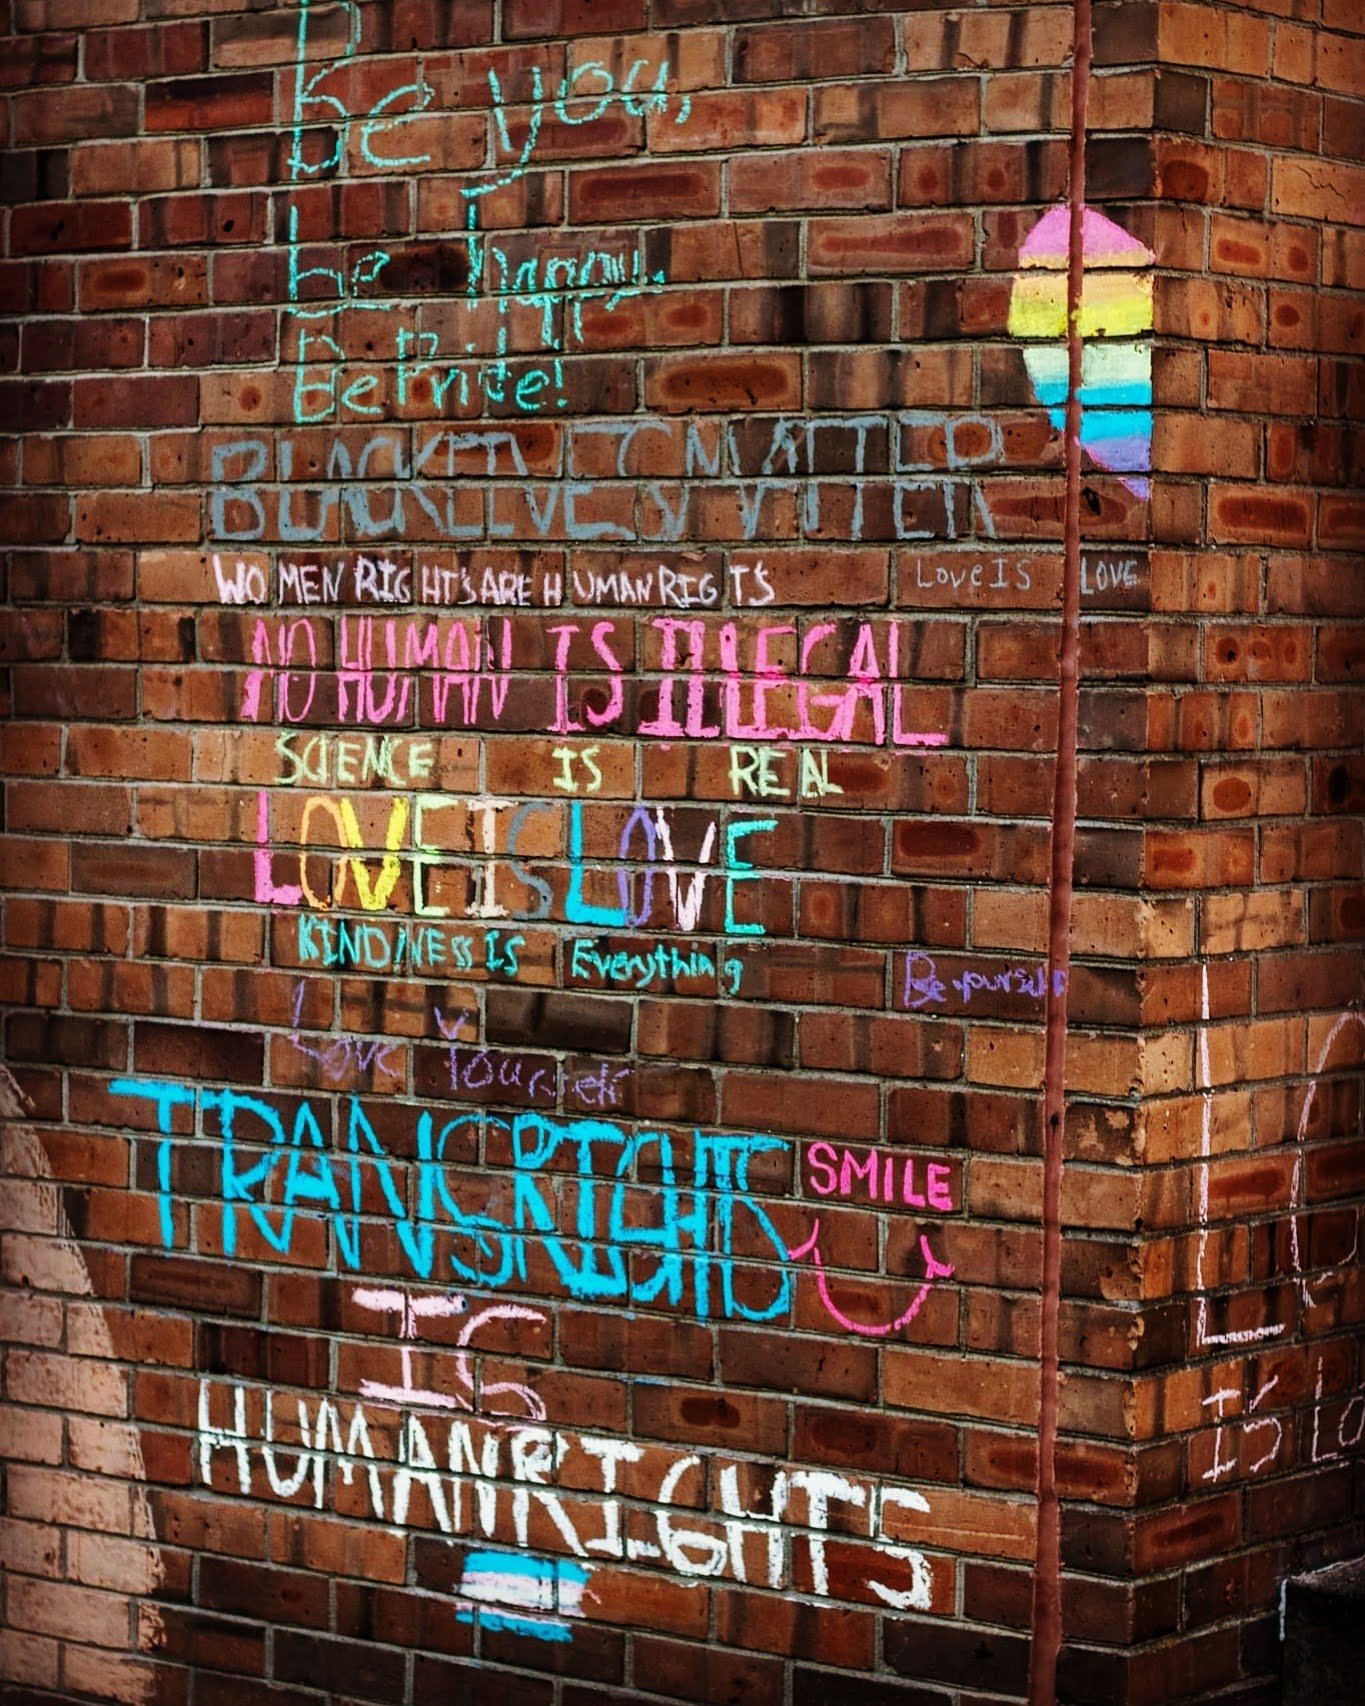 Be you,
be happy,
Be Pride!
BLACK LIVES MATTER
WOMEN RIGHTS ARE HUMAN RIGHTS
Love IS LOVE
NO HUMAN IS ILLEGAL
SCIENCE IS REAL
LOVE IS LOVE
KINDNESS IS Everything
Be yourself
Love Yourself
TRANS RIGHTS
SMILE
IS
HUMAN RIGHTS
IS